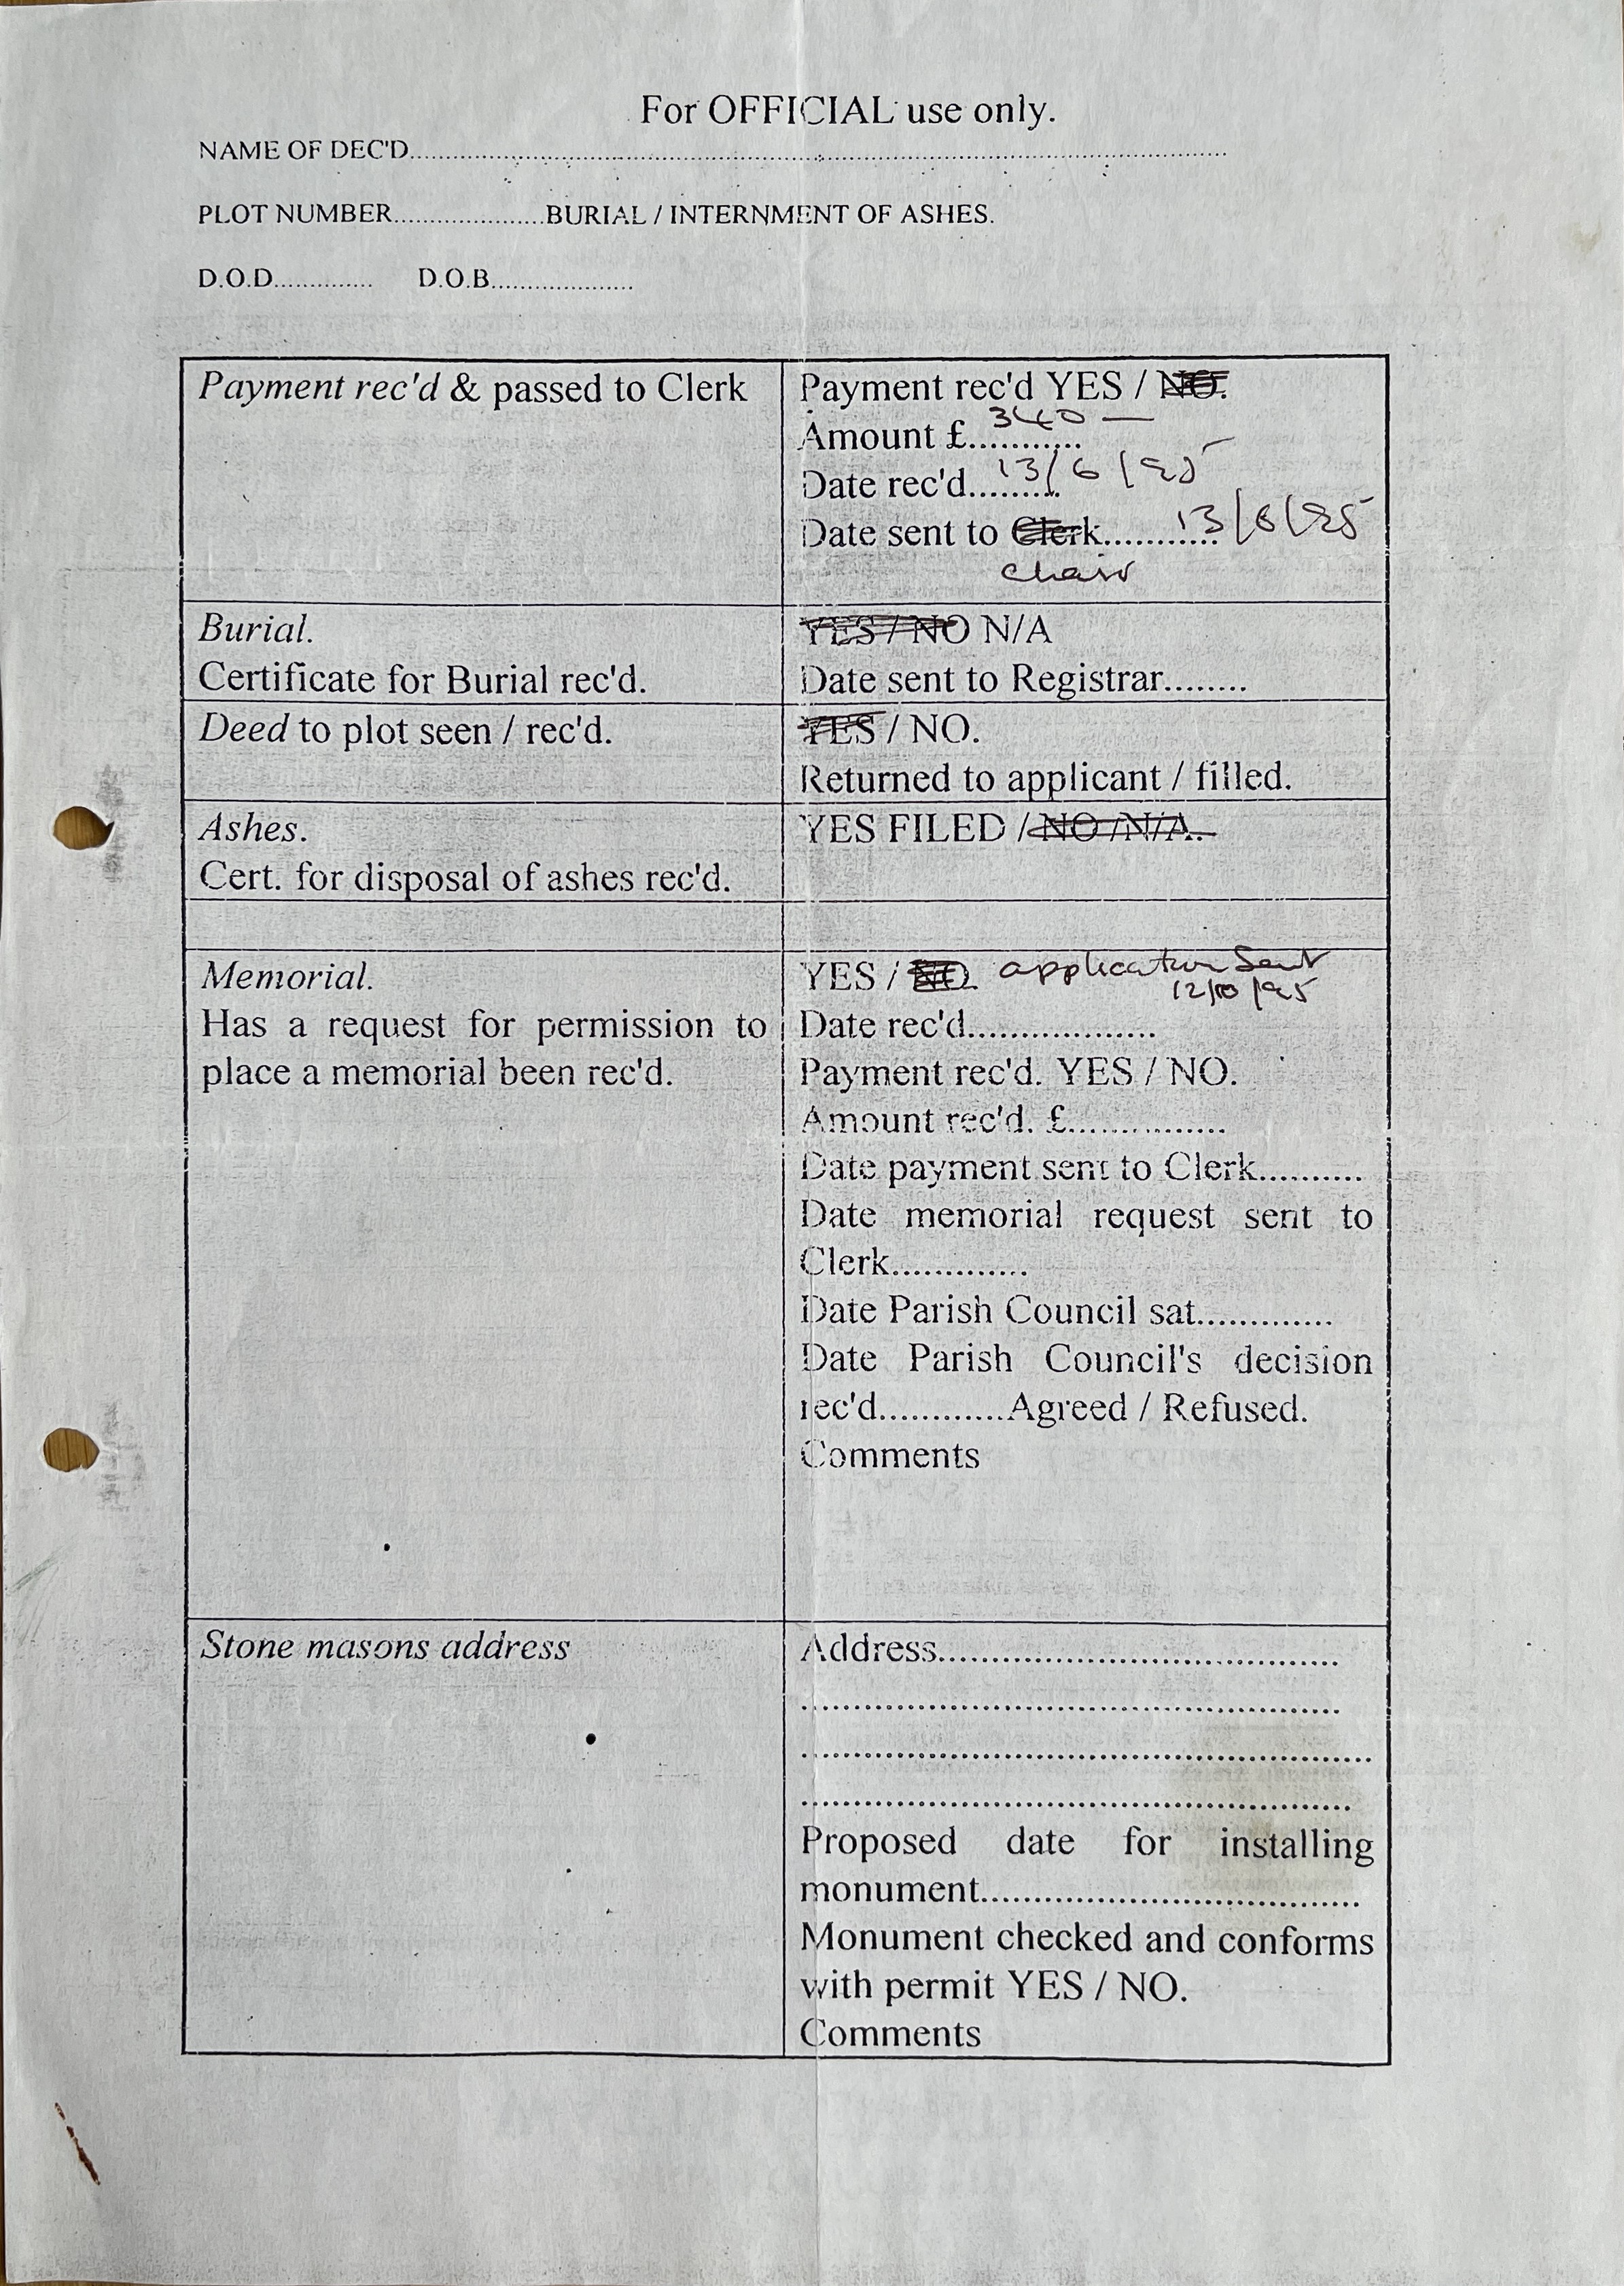 For OFFICIAL use only.
NAME OF DEC'D..........................................................................................
PLOT NUMBER.....................BURIAL / INTERNMENT OF ASHES.
D.O.D.............. D.O.B....................
Payment rec'd & passed to Clerk
Payment rec'd YES / NO.
Amount £........... 340 —
Date rec'd......... 13/6/95
Date sent to Clerk........... 13/6/95
chair
Burial.
Certificate for Burial rec'd.
YES / NO N/A
Date sent to Registrar........
Deed to plot seen / rec'd.
YES / NO.
Returned to applicant / filled.
Ashes.
Cert. for disposal of ashes rec'd.
YES FILED / NO /N/A.
Memorial.
Has a request for permission to
place a memorial been rec'd.
YES / NO. application Sent
12/10/95
Date rec'd..................
Payment rec'd. YES / NO.
Amount rec'd. £...............
Date payment sent to Clerk..........
Date memorial request sent to
Clerk.............
Date Parish Council sat.............
Date Parish Council's decision
rec'd............Agreed / Refused.
Comments
Stone masons address
Address.......................................
....................................................
.......................................................
.....................................................
Proposed date for installing
monument.....................................
Monument checked and conforms
with permit YES / NO.
Comments